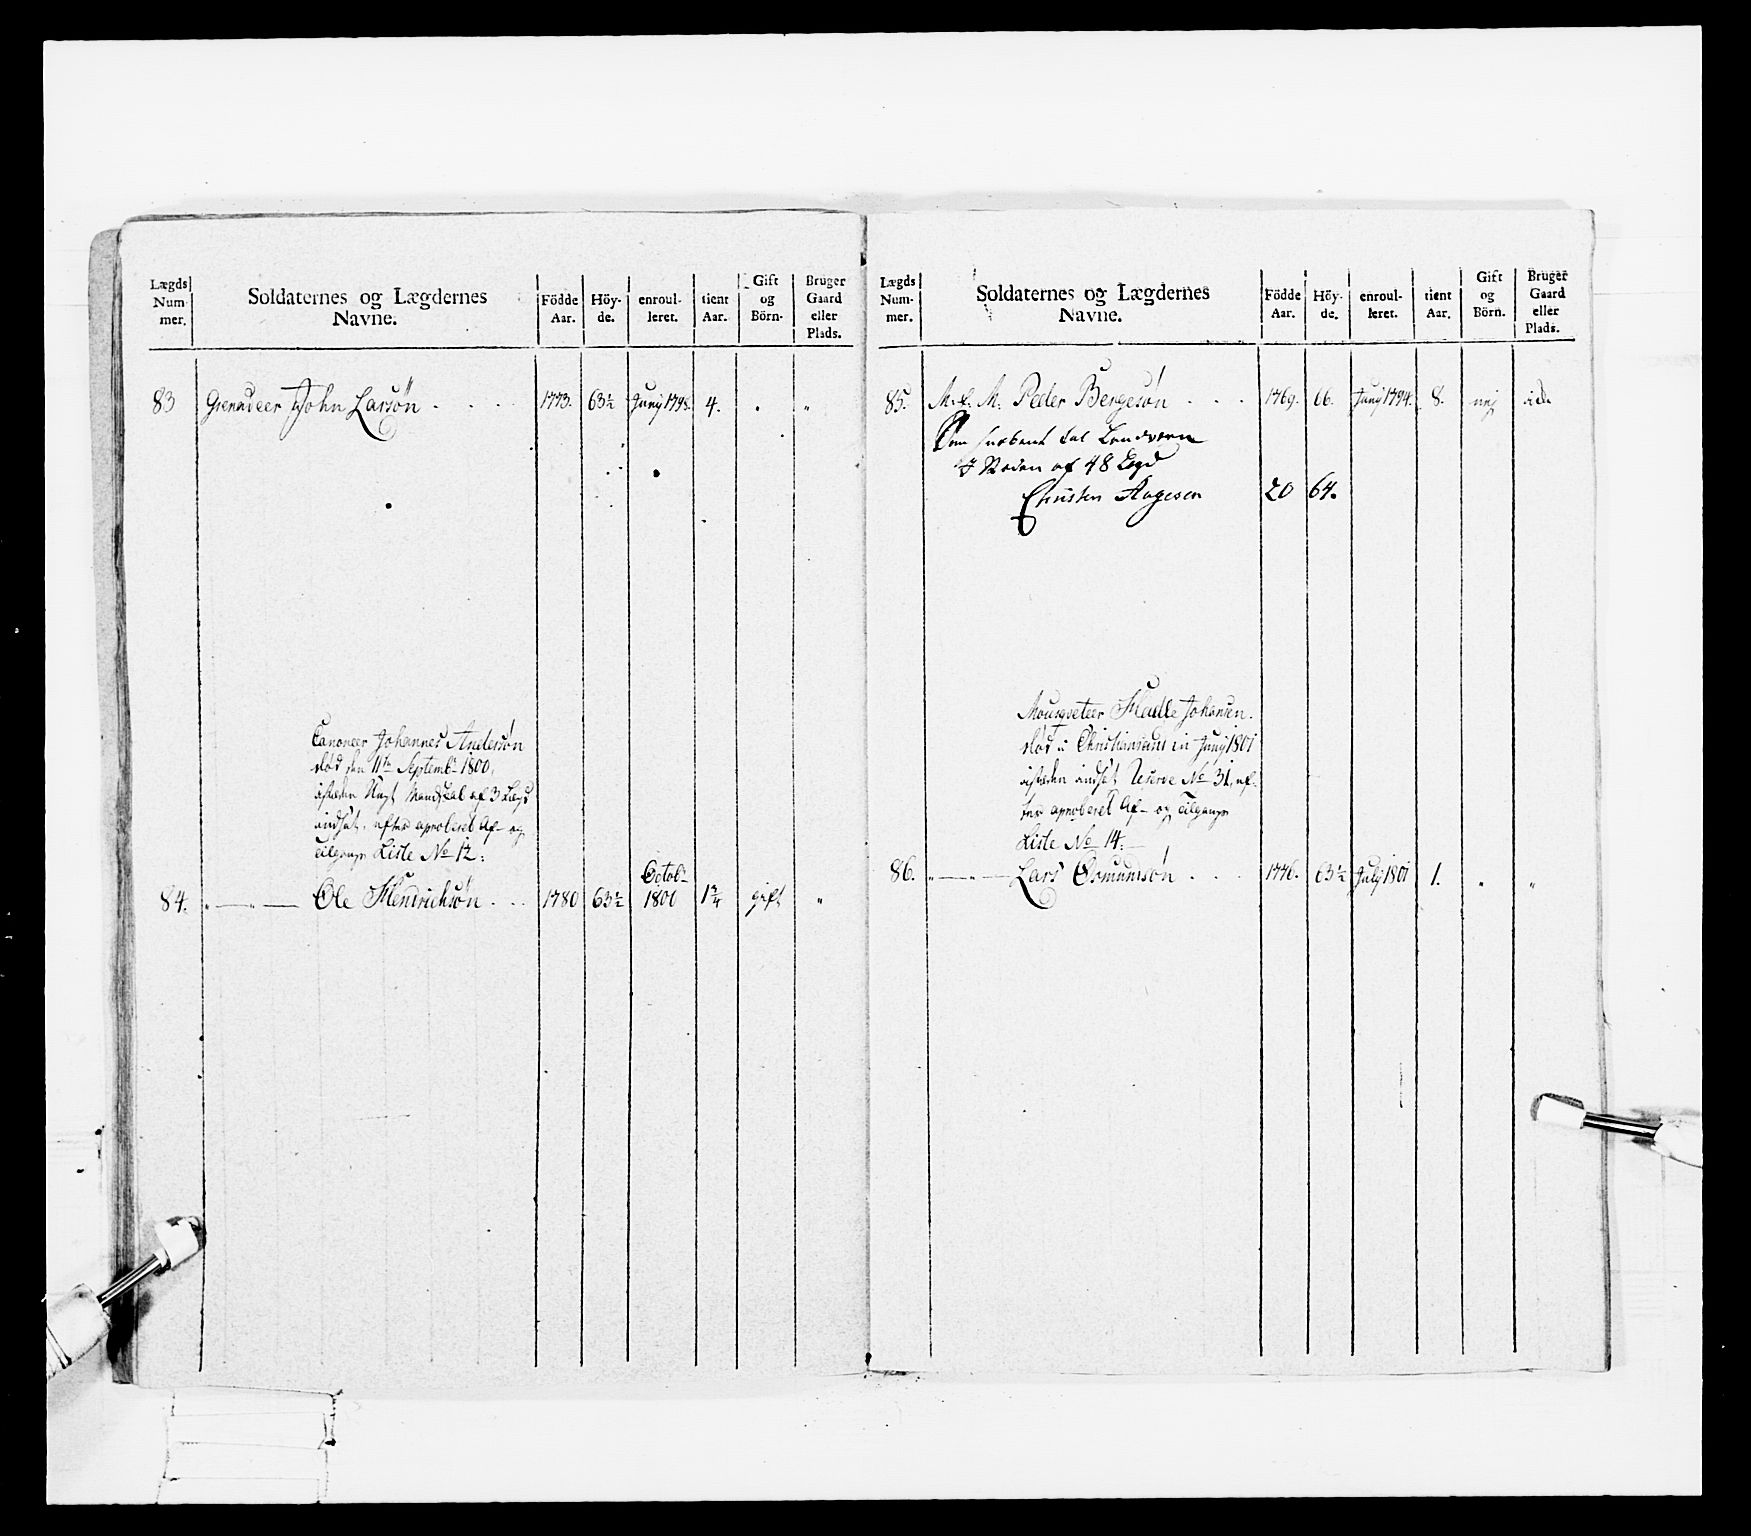 Lægds Num- mer. Soldaternes og Lægdernes Navne. Födde Aar. Höy- de. enroul- leret. tient Aar. Gift og Börn. Bruger Gaard eller Plads.
83 Grenadeer John Larsøn 1773. 63½ Junj 1798. 4. . "
Canoneer Johannes Andersøn
død den 11te Septembr 1800,
isteden Ungt Mandskal af 3 Lægd
indsat, efter aproberet Af- og
Tilgangs Liste No 12:
84. " — " — Ole Hendrichsøn 1780 63½ Octobr 1800 gift "
Lægds Num- mer. Soldaternes og Lægdernes Navne. Födde Aar. Höy- de. enroul- leret. tient Aar. Gift og Börn. Bruger Gaard eller Plads.
85. Peder Bergesøn 1769. 66. Junj 1794. 8. nej
Landværn
af 48 Lægd
Christen Aagesen 20 64.
Mousqveteer Johansen.
død i Christiansand in Junj 1801
isteden indsat Reserve No 31, ef-
ter aproberet Af- og Tilgangs
Liste No 14:
86. " — " — Lars Osmundsøn 1776. 63½ July 1801 1. " "